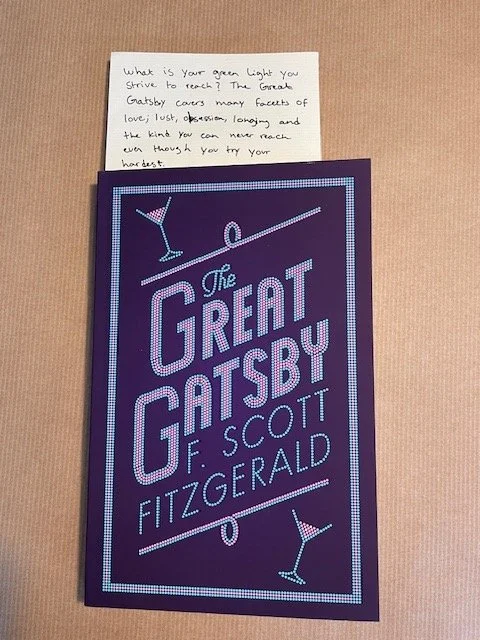 What is your green light you
strive to reach? The Great
Gatsby covers many facets of
love; lust, obsession, longing and
the kind you can never reach
even though you try your
hardest.
The
GREAT
GATSBY
F. SCOTT
FITZGERALD